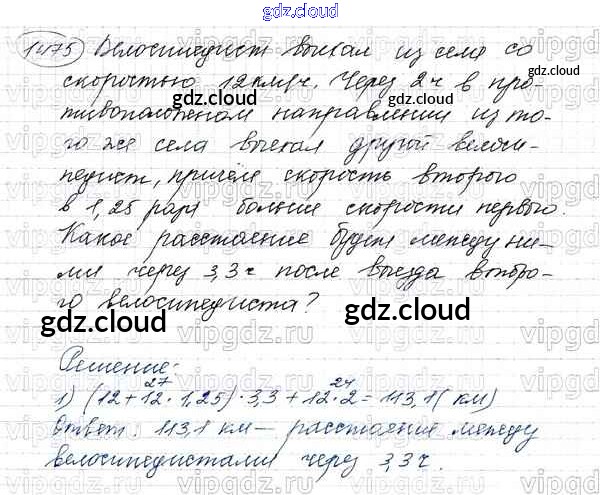 gdz.cloud
1475 Велосипедист выехал из села со
скоростью 12 км/ч. Через 2 ч в про-
тивоположном направлении из то-
го же села выехал другой велоси-
педист, причём скорость второго
в 1,25 раза больше скорости первого.
Какое расстояние будет между ни-
ми через 3,3 ч после выезда второ-
го велосипедиста?
gdz.cloud
Решение:
27 24
1) (12 + 12 · 1,25) · 3,3 + 12 · 2 = 113,1 (км)
Ответ: 113,1 км — расстояние между
велосипедистами через 3,3 ч.